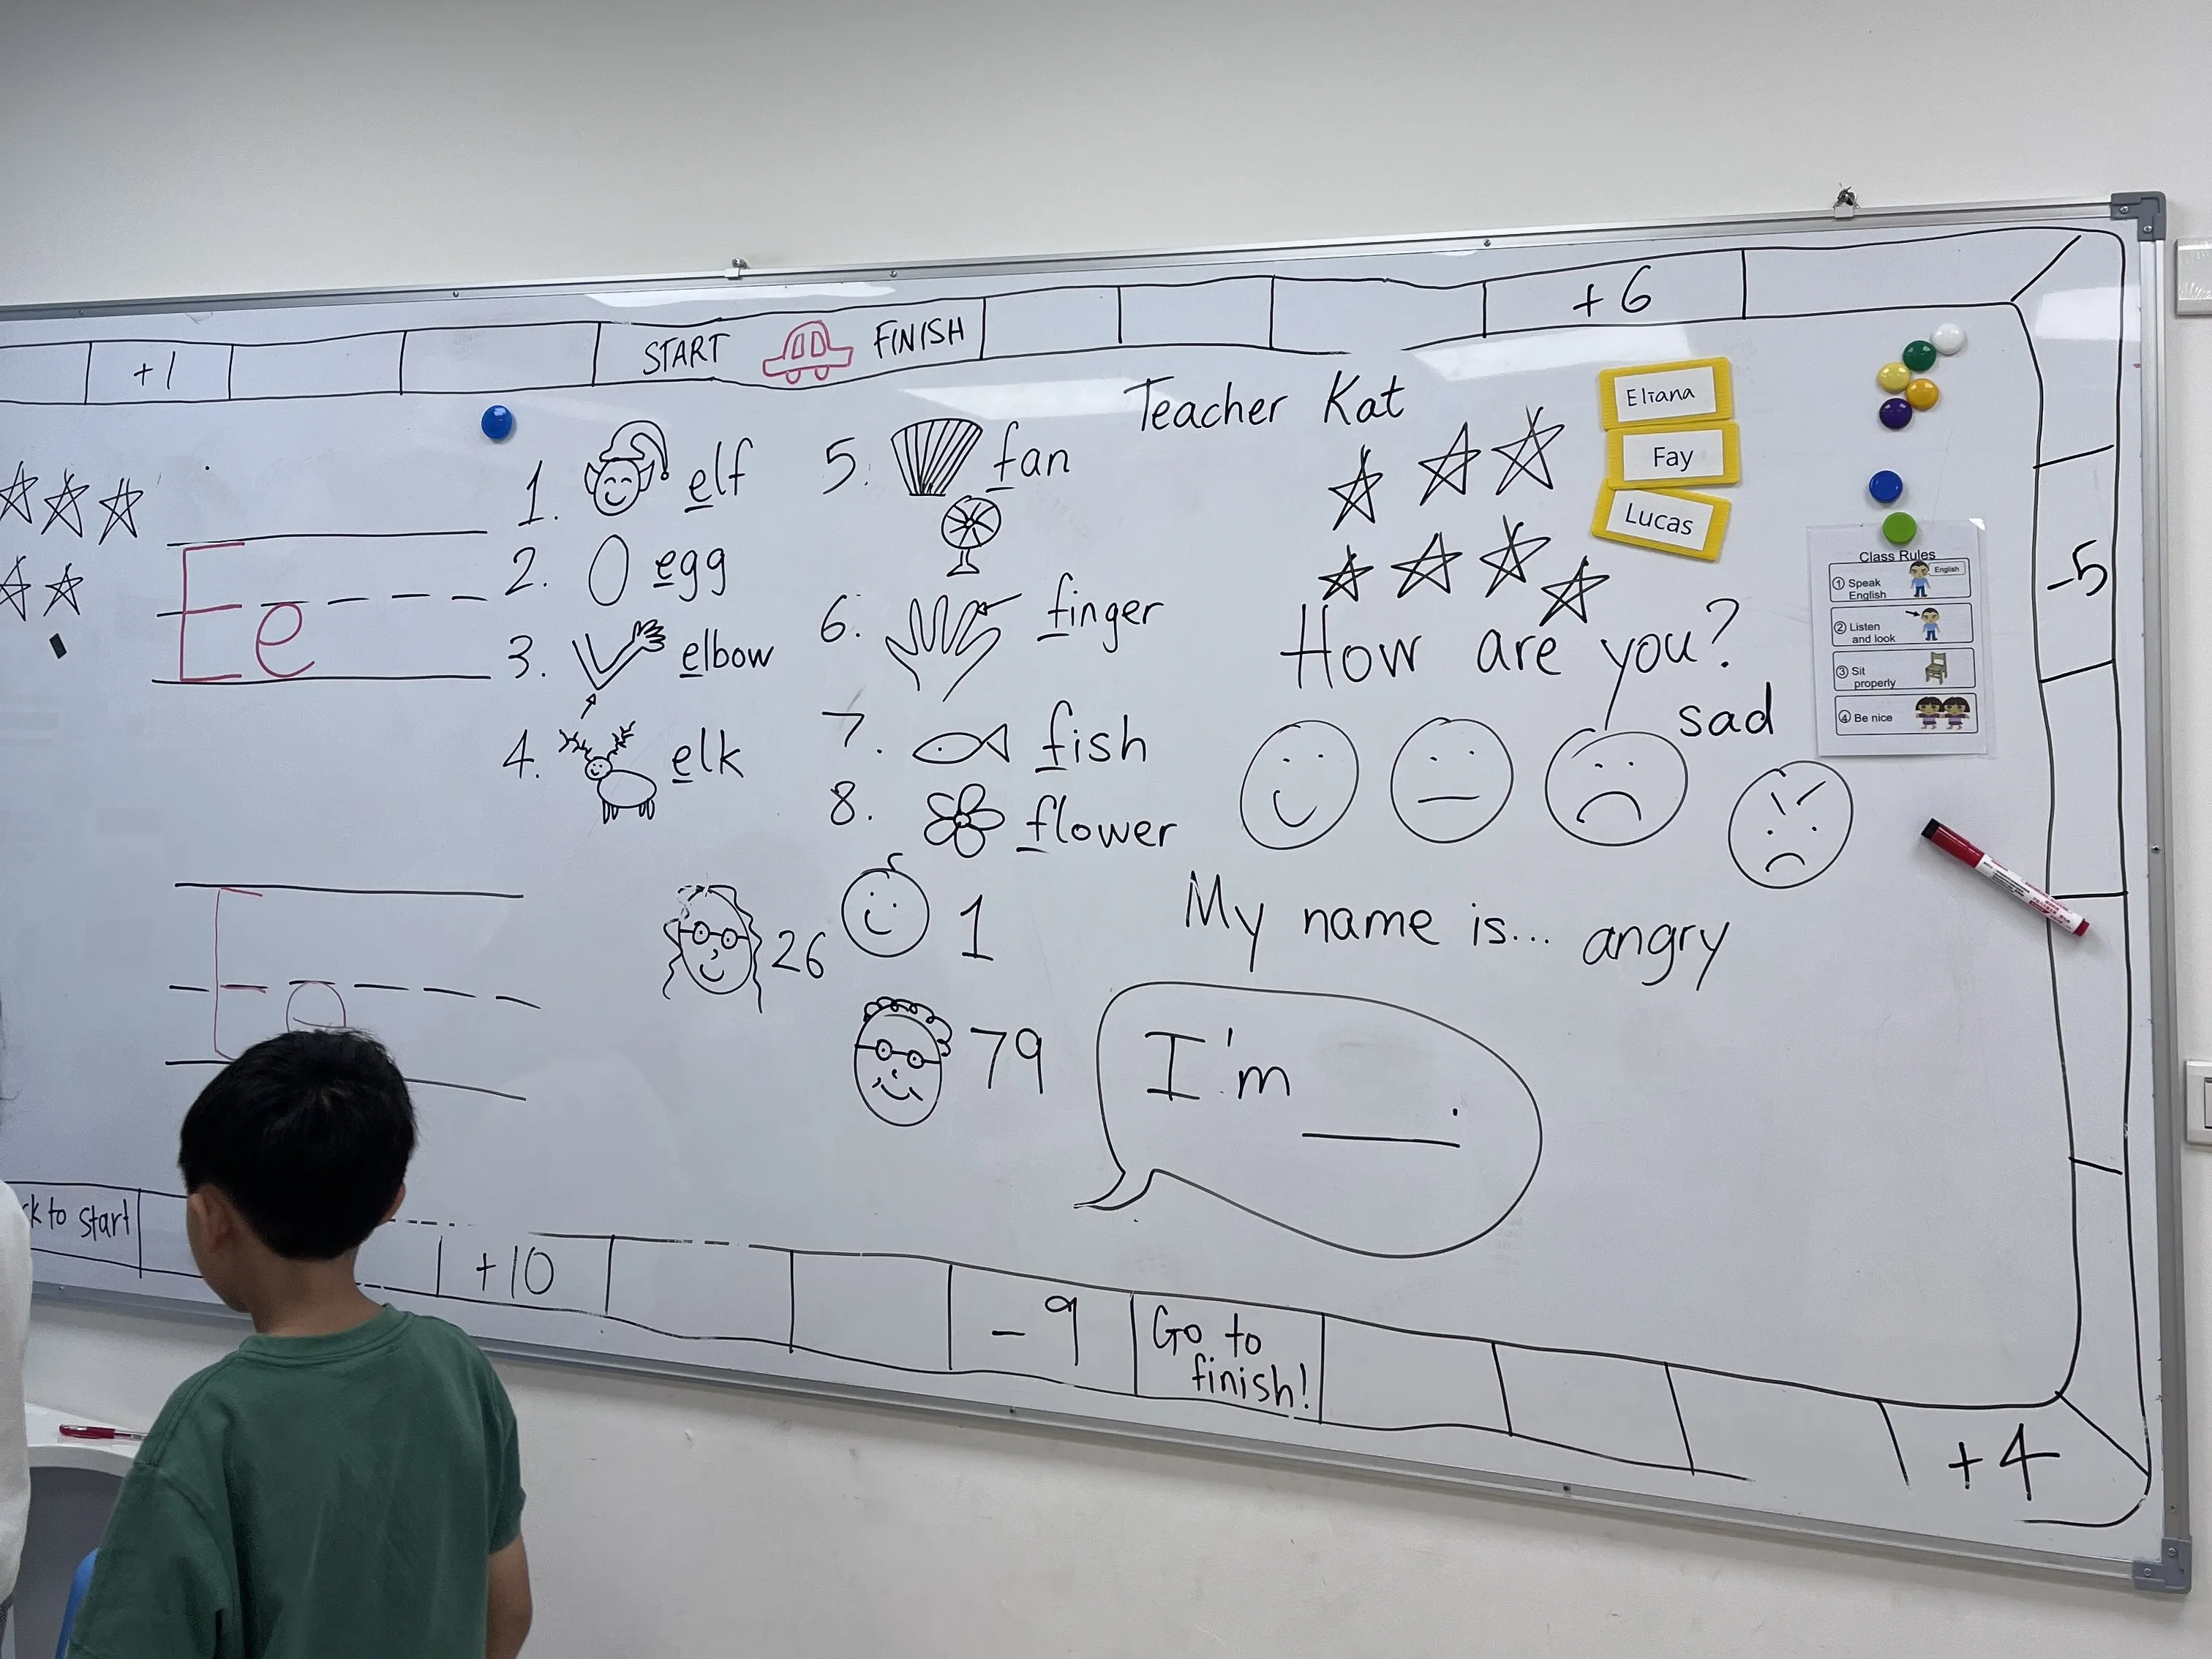 +1
START FINISH
+6
Teacher Kat
Eliana
Fay
Lucas
Class Rules
English
① Speak
English
② Listen
and look
③ Sit
properly
④ Be nice
-5
E e
1. elf
2. egg
3. elbow
4. elk
5. fan
6. finger
7. fish
8. flower
How are you?
sad
My name is... angry
E e
26
1
79
I'm ____.
to start
+10
-9
Go to
finish!
+4